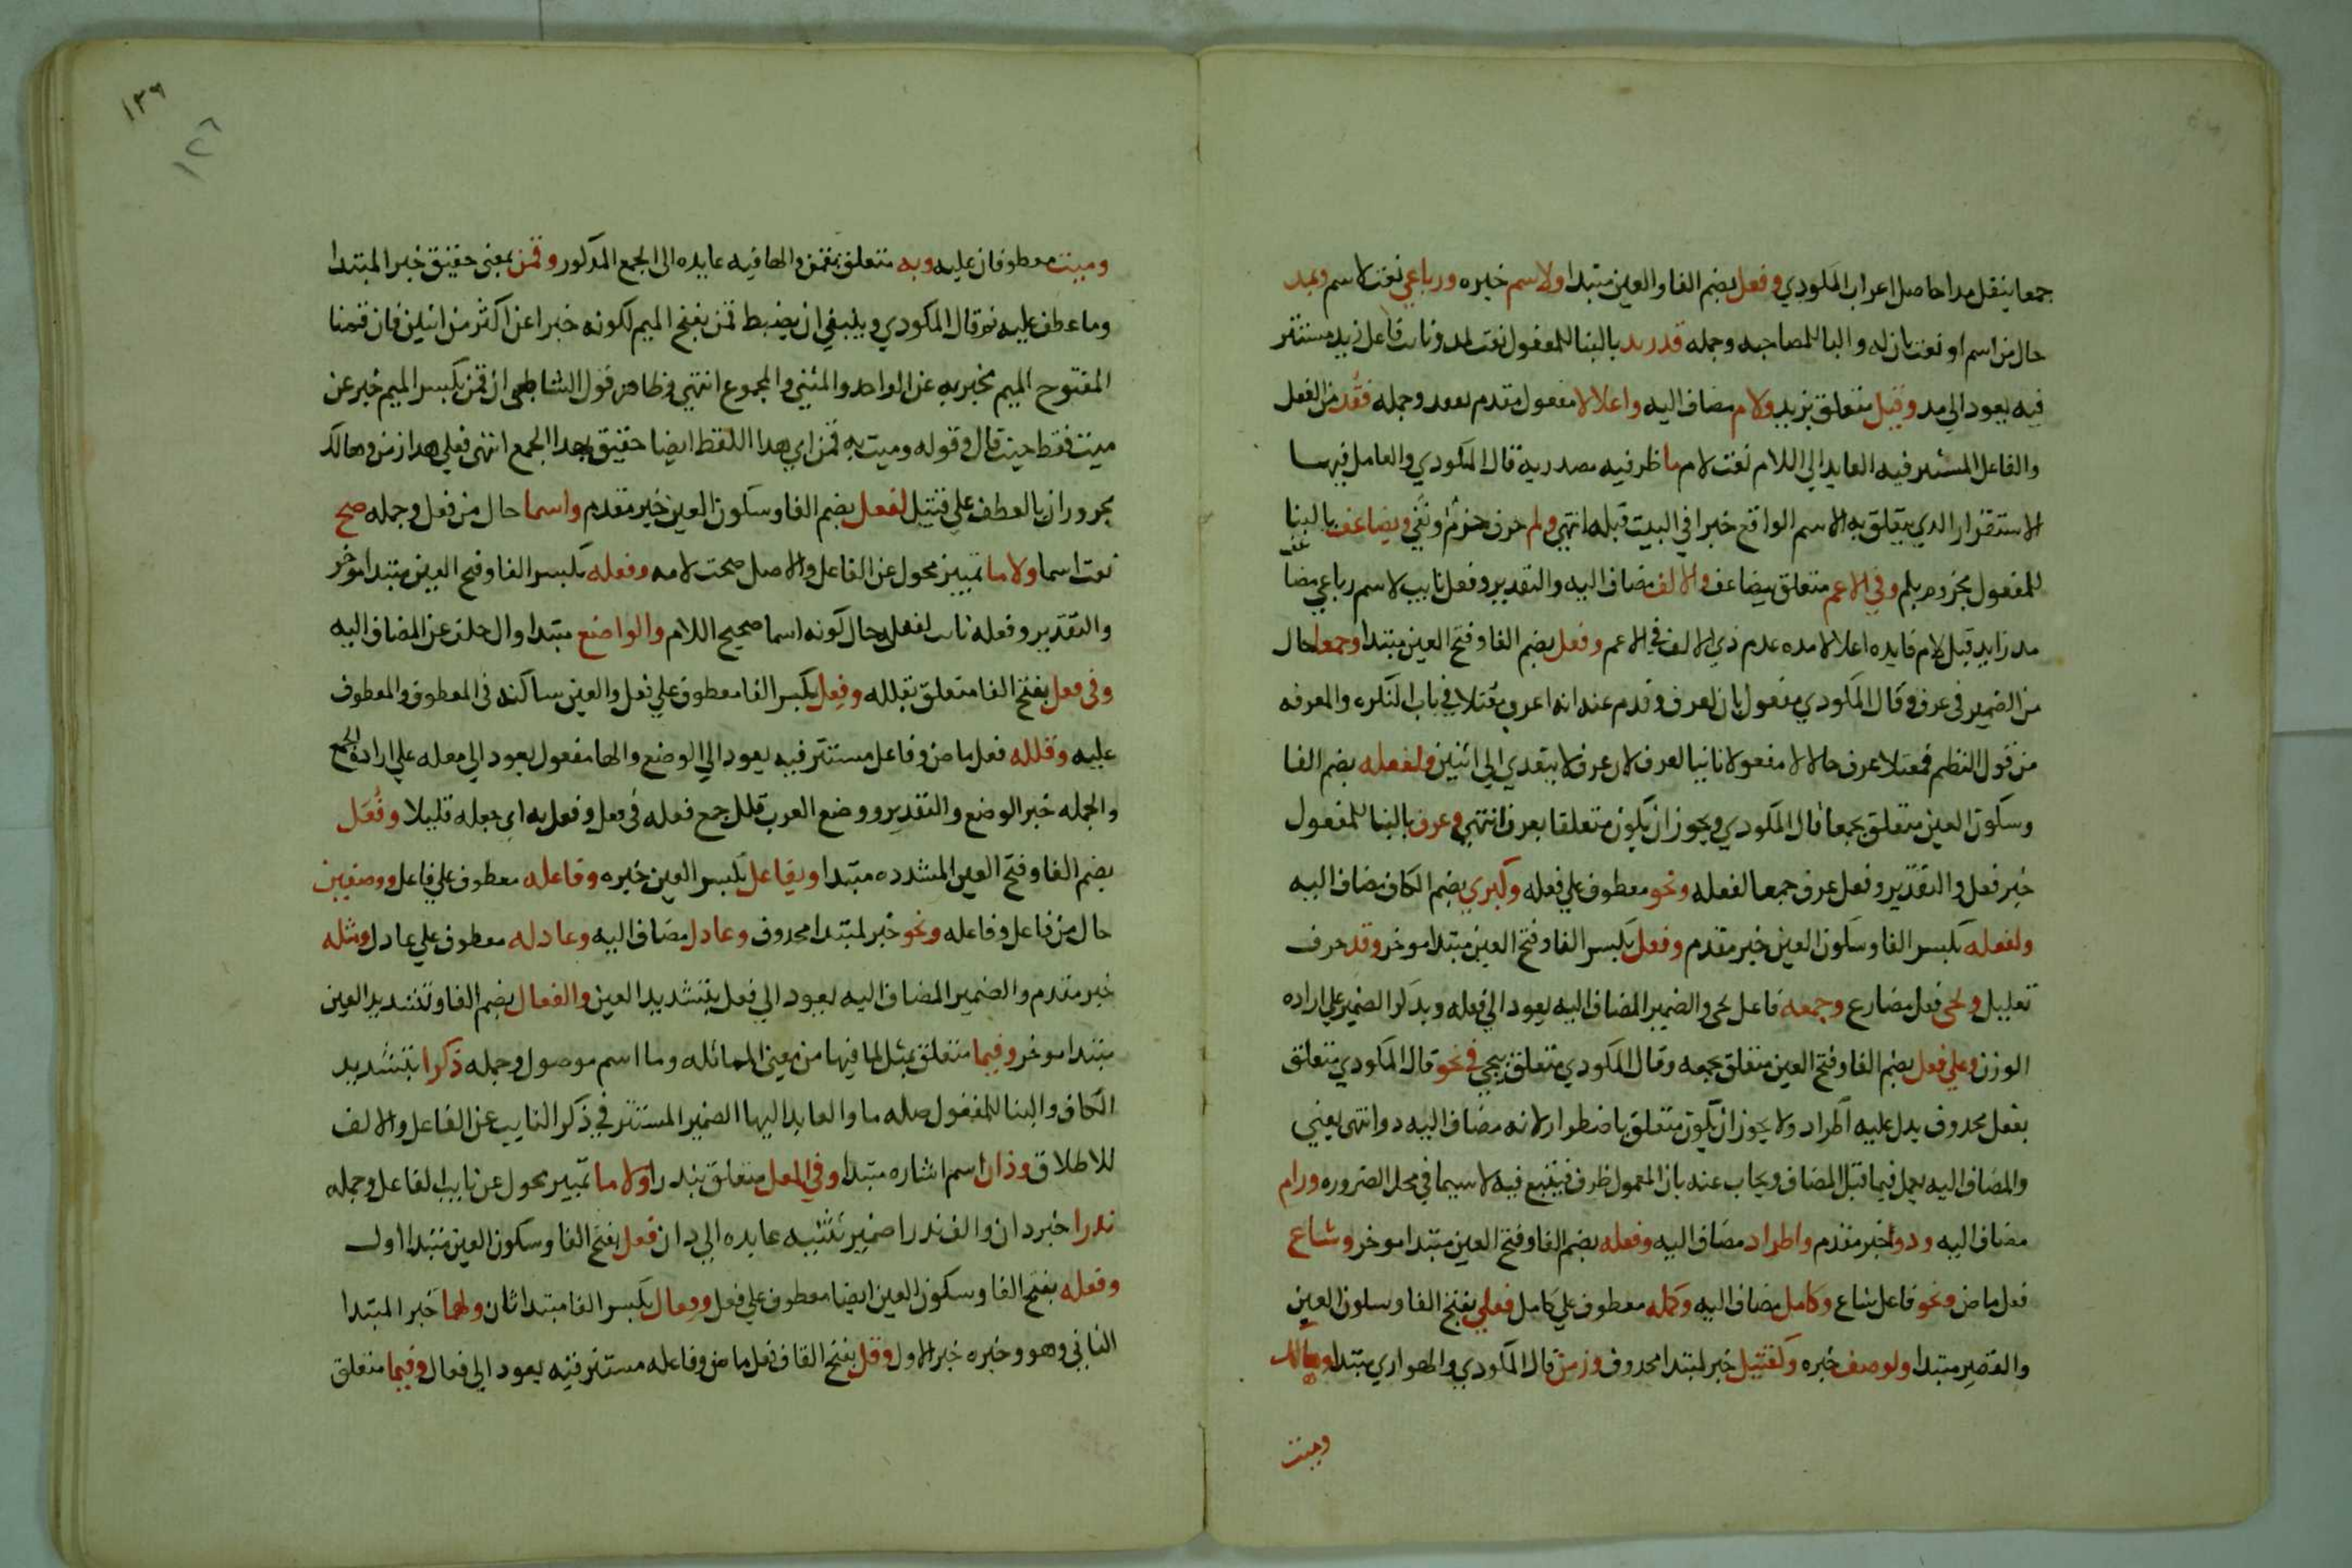 جمعا ينقل مدا حاصل اعراب المكودي وفعل بضم الفا والعين مبتدا ولاسم خبره ورباعي نعت لاسم وبمد
حال من اسم او نعت ثان له والبا للمصاحبه وجمله قد زيد بالبنا للمفعول نعت لمد ونائب فاعل زيد مستتر
فيه يعود الي مد وقبل متعلق بزيد ولام مضاف اليه واعلالا مفعول مقدم بفقد وجمله فقد من الفعل
والفاعل المستتر فيه العايد الي اللام نعت لام ما ظرفيه مصدرية قال المكودي والعامل فيها
الاستقرار الدي يتعلق به الاسم الواقع خبرا في البيت قبله انتهي ولم حرف جزم ونفي ويضاعف بالبنا
للمفعول مجزوم بلم وفي الاعم متعلق بيضاعف والالف مضاف اليه والتقدير وفعل نايب لاسم رباعي مضاعف
مد زايد قبل لام فايده اعلالا مده عدم ذي الالف في الاعم وفعل بضم الفا وفتح العين مبتدا وجمعا حال
من الضمير في عرف وقال المكودي مفعول ثان لعرف وقدم عنه انه اعرب مقتلا في باب النكره والمعرفه
من قول النظم فمقتلا عرف حالا لا مفعولا ثانيا لعرف لان عرف لا يتعدي الي اثنين ولفعله بضم الفا
وسكون العين متعلق بجمعا قال المكودي ويجوز ان يكون متعلقا بعرف انتهي وعرف بالبنا للمفعول
خبر فعل والتقدير وفعل عرف جمعا لفعله ونحو معطوف علي فعله وكبري بضم الكاف مضاف اليه
ولفعله بكسر الفا وسكون العين خبر مقدم وفعل بكسر الفا وفتح العين مبتدا موخر وقد حرف
تقليل ويجي فعل مضارع وجمعه فاعل يجي والضمير المضاف اليه يعود الي فعله وبدكر الضمير علي اراده
الوزن وعلي فعل بضم الفا وفتح العين متعلق بجمعه وقال المكودي متعلق بيجي في نحو قال المكودي متعلق
بفعل محدوف يدل عليه اطراد ولا يجوز ان يكون متعلق باضطرار لانه مضاف اليه دو انتهي يعني
والمضاف اليه يعمل فيما قبل المضاف ويجاب عنه بان المعمول ظرف فيتسع فيه لاسيما في محل الضروره ورام
مضاف اليه ودو اخبر مقدم واطراد مضاف اليه وفعله بضم الفا وفتح العين مبتدا موخر وشاع
فعل ماض ونحو فاعل شاع وكامل مضاف اليه وكمله معطوف علي كامل فعلي بفتح الفا وسكون العين
والقصر مبتدا ولوصف خبره وكقتيل خبر لمبتدا محدوف وزمن قال المكودي والهواري مبتدا وهالك
وميت
١٣٩
١٢٦
وميت معطوفان عليه وبه متعلق بقمن والها فيه عايده الي الجمع المدكور وقمن بمعني حقيق خبر المبتدا
وما عطف عليه نو قال المكودي وينبغي ان يضبط قمن بفتح الميم لكونه خبرا عن اكثر من اثنين فان قمنا
المفتوح الميم يخبر به عن الواحد والمثني والمجموع انتهي وظاهر قول الشاطبي ان قمن بكسر الميم خبر عن
ميت فقط حيث قال وقوله وميت به قمن اي هدا اللفظ ايضا حقيق بهدا الجمع انتهي فعلي هدا زمن وهالك
مجروران بالعطف علي قتيل لفعل بضم الفا وسكون العين خبر مقدم واسما حال من فعل وجمله صح
نعت اسما ولاما تمييز محول عن الفاعل والاصل صحت لامه وفعله بكسر الفا وفتح العين مبتدا موخر
والتقدير وفعله ثابت لفعل حال كونه اسما صحيح اللام والواضع مبتدا وال خلف عن المضاف اليه
وفي فعل بفتح الفا متعلق بقلله وفعل بكسر الفا معطوف علي فعل والعين ساكنه في المعطوف والمعطوف
عليه وقلله فعل ماض وفاعل مستتر فيه يعود الي الوضع والها مفعول يعود الي فعله علي ارادة الجمع
والجمله خبر الوضع والتقدير ووضع العرب قلل جمع فعله في فعل وفعل به اي جعله قليلا وفعل
بضم الفا وفتح العين المشدده مبتدا وبفاعل بكسر العين خبره وفاعله معطوف علي فاعل ووصفين
حال من فاعل وفاعله ونحو خبر لمبتدا محدوف وعادل مضاف اليه وعادله معطوف علي عادل ومثله
خبر مقدم والضمير المضاف اليه يعود الي فعل بتشديد العين والفعال بضم الفا وتشديد العين
مبتدا موخر وفيما متعلق بمثل لما فيها من معني المماثله وما اسم موصول وجمله ذكرا بتشديد
الكاف والبنا للمفعول صله ما والعايد اليها الضمير المستتر في ذكر النايب عن الفاعل والالف
للاطلاق وذان اسم اشاره مبتدا وفي المعل متعلق بندرا ولاما تمييز محول عن نايب الفاعل وجمله
ندرا خبر دان والف ندرا ضمير تثنيه عايده الي دان فعل بفتح الفا وسكون العين مبتدا اول
وفعله بفتح الفا وسكون العين ايضا معطوف علي فعل وفعال بكسر الفا مبتدا ثان ولهما خبر المبتدا
الثاني وهو وخبره خبر الاول وقل بفتح القاف فعل ماض وفاعله مستتر فيه يعود الي فعال وفيما متعلق